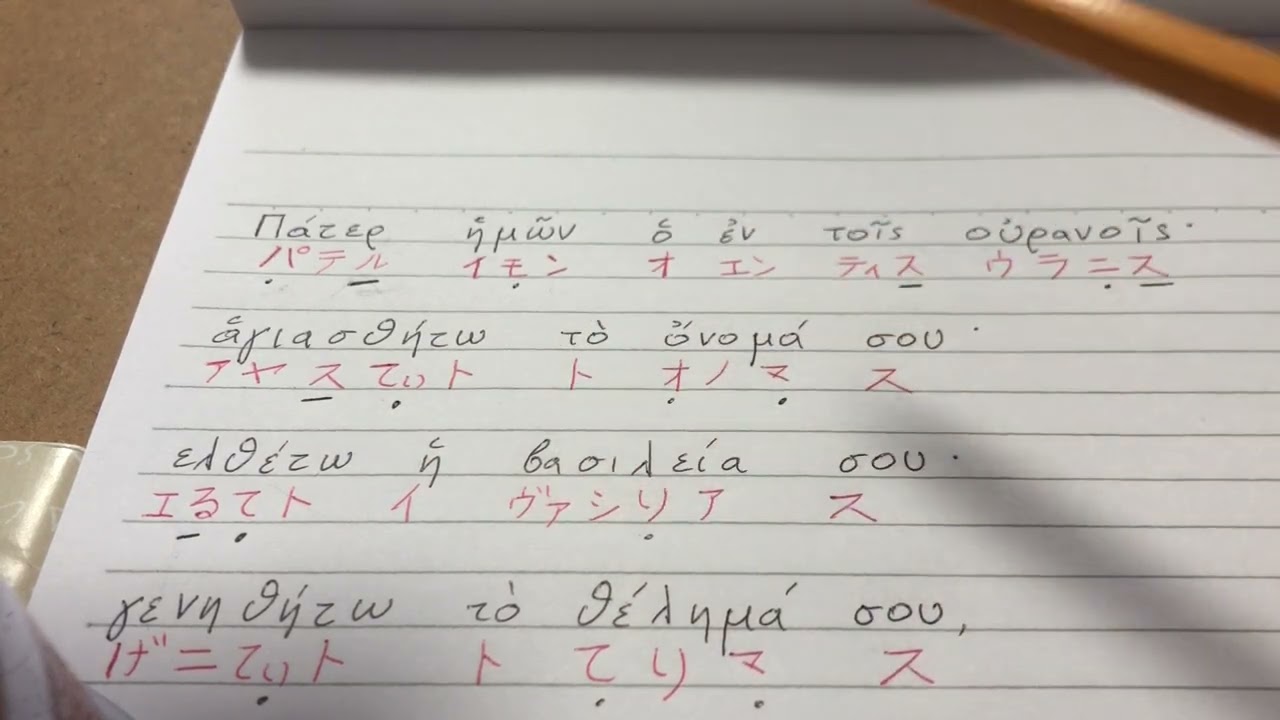 Πάτερ ἡμῶν ὁ ἐν τοῖς οὐρανοῖς·
パテル イモン オ エン ティス ウラニス
ἁγιασθήτω τὸ ὄνομά σου·
アヤスてぃト ト オノマ ス
ελθέτω ἡ βασιλεία σου·
エるてト イ ヴァシリア ス
γενηθήτω τὸ θέλημά σου,
げニてぃト ト てリマ ス